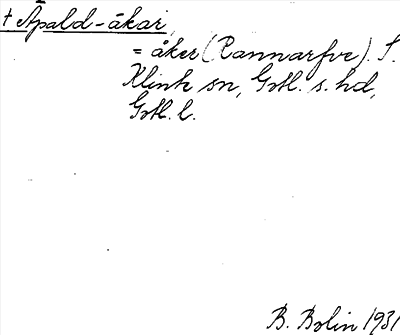 † Āpald-åkar,
= åker (Rannarfve). S.
Klinte sn, Gotl. s. hd,
Gotl. l.
B. Bolin 1931